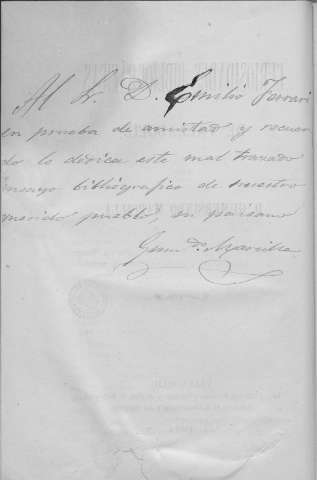 Al Sr. D. Emilio Ferrari
en prueba de amistad y recuer-
do le dedica este mal trazado
ensayo bibliografico de nuestro
querido pueblo, su paisano
Gum.do Marcilla